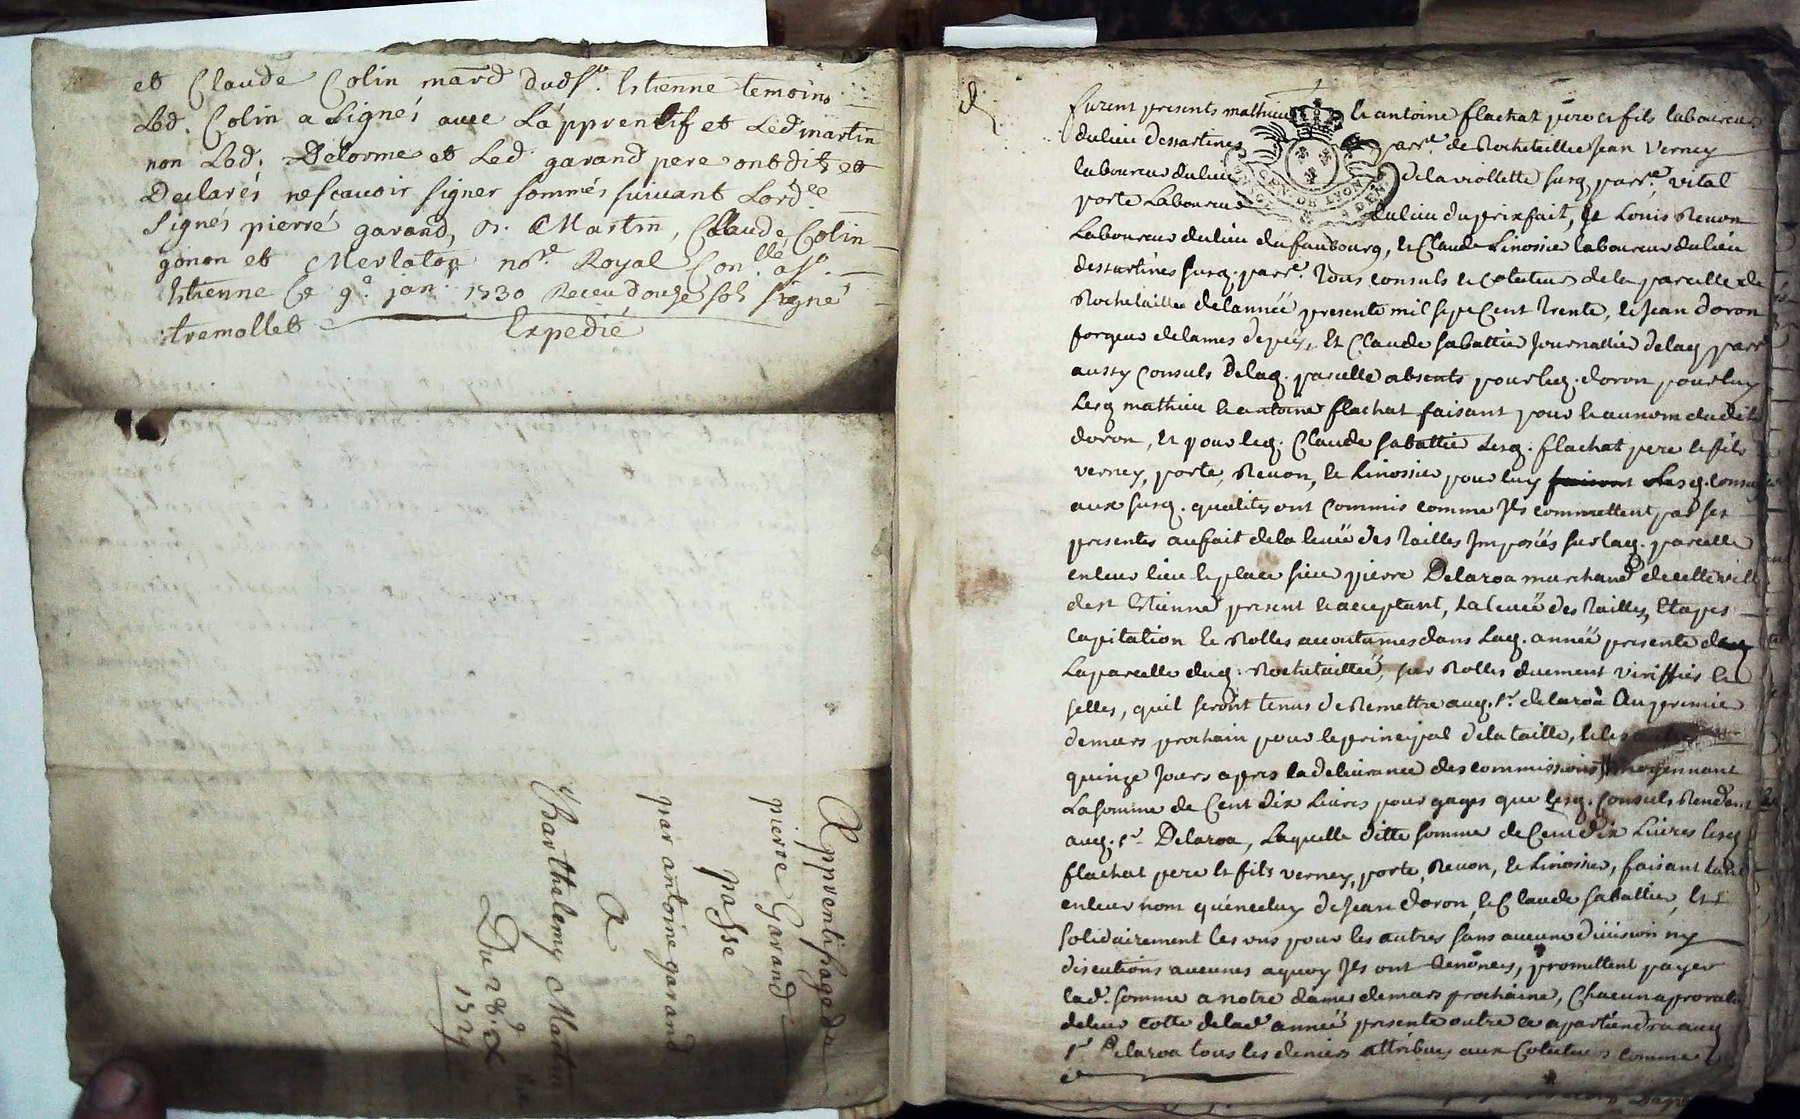 et Claude Colin mard dudst. Estienne temoins
Led. Colin a Signé avec L'apprentif et Led martin
non Led. Delorme et Led. garand pere ont dit et
Declarés nescavoir signer sommés suivant Lordce
Signés pierre garand, Martin, Claude Colin
gonon et Merlaton nore. Royal Con.lle a st.
Estienne Ce 9e. jan. 1730 Receu douze sols signé
tremollet Expedié
Apprentissage de
pierre Garand
passe
par antoine garand
A
Barthelemy Martin
Du 28. 9
1729
furent presents mathieu & antoine flachat pere et fils laboureurs
du lieu dessartines parre. de Rochetaillee Jean Verney
laboureur du lieu de la viollette susq. parre. vital
porte Laboureur du lieu du prixfait, & Louis Revon
Laboureur du lieu du faubourg, & Claude Linossier laboureur du lieu
dessartines susq. parre. Tous consuls & Coteteurs de la parcelle de
Rochetaillee de lannée presente mil sept Cent trente, & Jean doron
forgeur de lames depées, Et Claude sabattier Journallier de laq. parre
aussy Consuls de laq. parcelle absents pour leq. doron pour luy
Lesq mathieu & antoine flachat faisant pour & au nom dudit
doron, Et pour leq. Claude sabattier Lesq. flachat pere & fils
verney, porte, Revon, & Linossier pour luy Lesq. consuls
aux susq. qualités ont Commis comme Ils commettent par ses
presentes au fait de la leuée des tailles Imposés sur laq. parcelle
en leur lieu & place sieur pierre Delaroa marchand de cette ville
de st Estienne present & acceptant, La leuée des tailles, Etapes
Capitation & Rolles accoutumes dans Laq. année presente
La parcelle duq. Rochetaillée, sur Rolles duement viriffiés &
selles, quil seront tenus de Remettre auq. sr. delaroa Au premier
de mars prochain pour le principal de la taille, & les
quinze Jours apres la deliurance des commissions moyennant
La somme de Cent dix Liures pour gages que lesq. Consuls Rendront
auq. sr. Delaroa, Laquelle ditte somme de Cent dix Liures lesq
flachat pere & fils verney, porte, Revon, & Linossier, faisant tant
en leur nom qu'en celuy de Jean doron, & Claude sabattier, Et
solidairement les uns pour les autres sans aucune diuision ny
discutions aucunes a quoy Ils ont Renoncés, promettent payer
lad. somme a notre dame de mars prochaine, Chacun a prorata
de leur Cotte de lad année presente outre ce apartiendra auq
sr Delaroa tous les deniers attribués aux Coteteurs comme